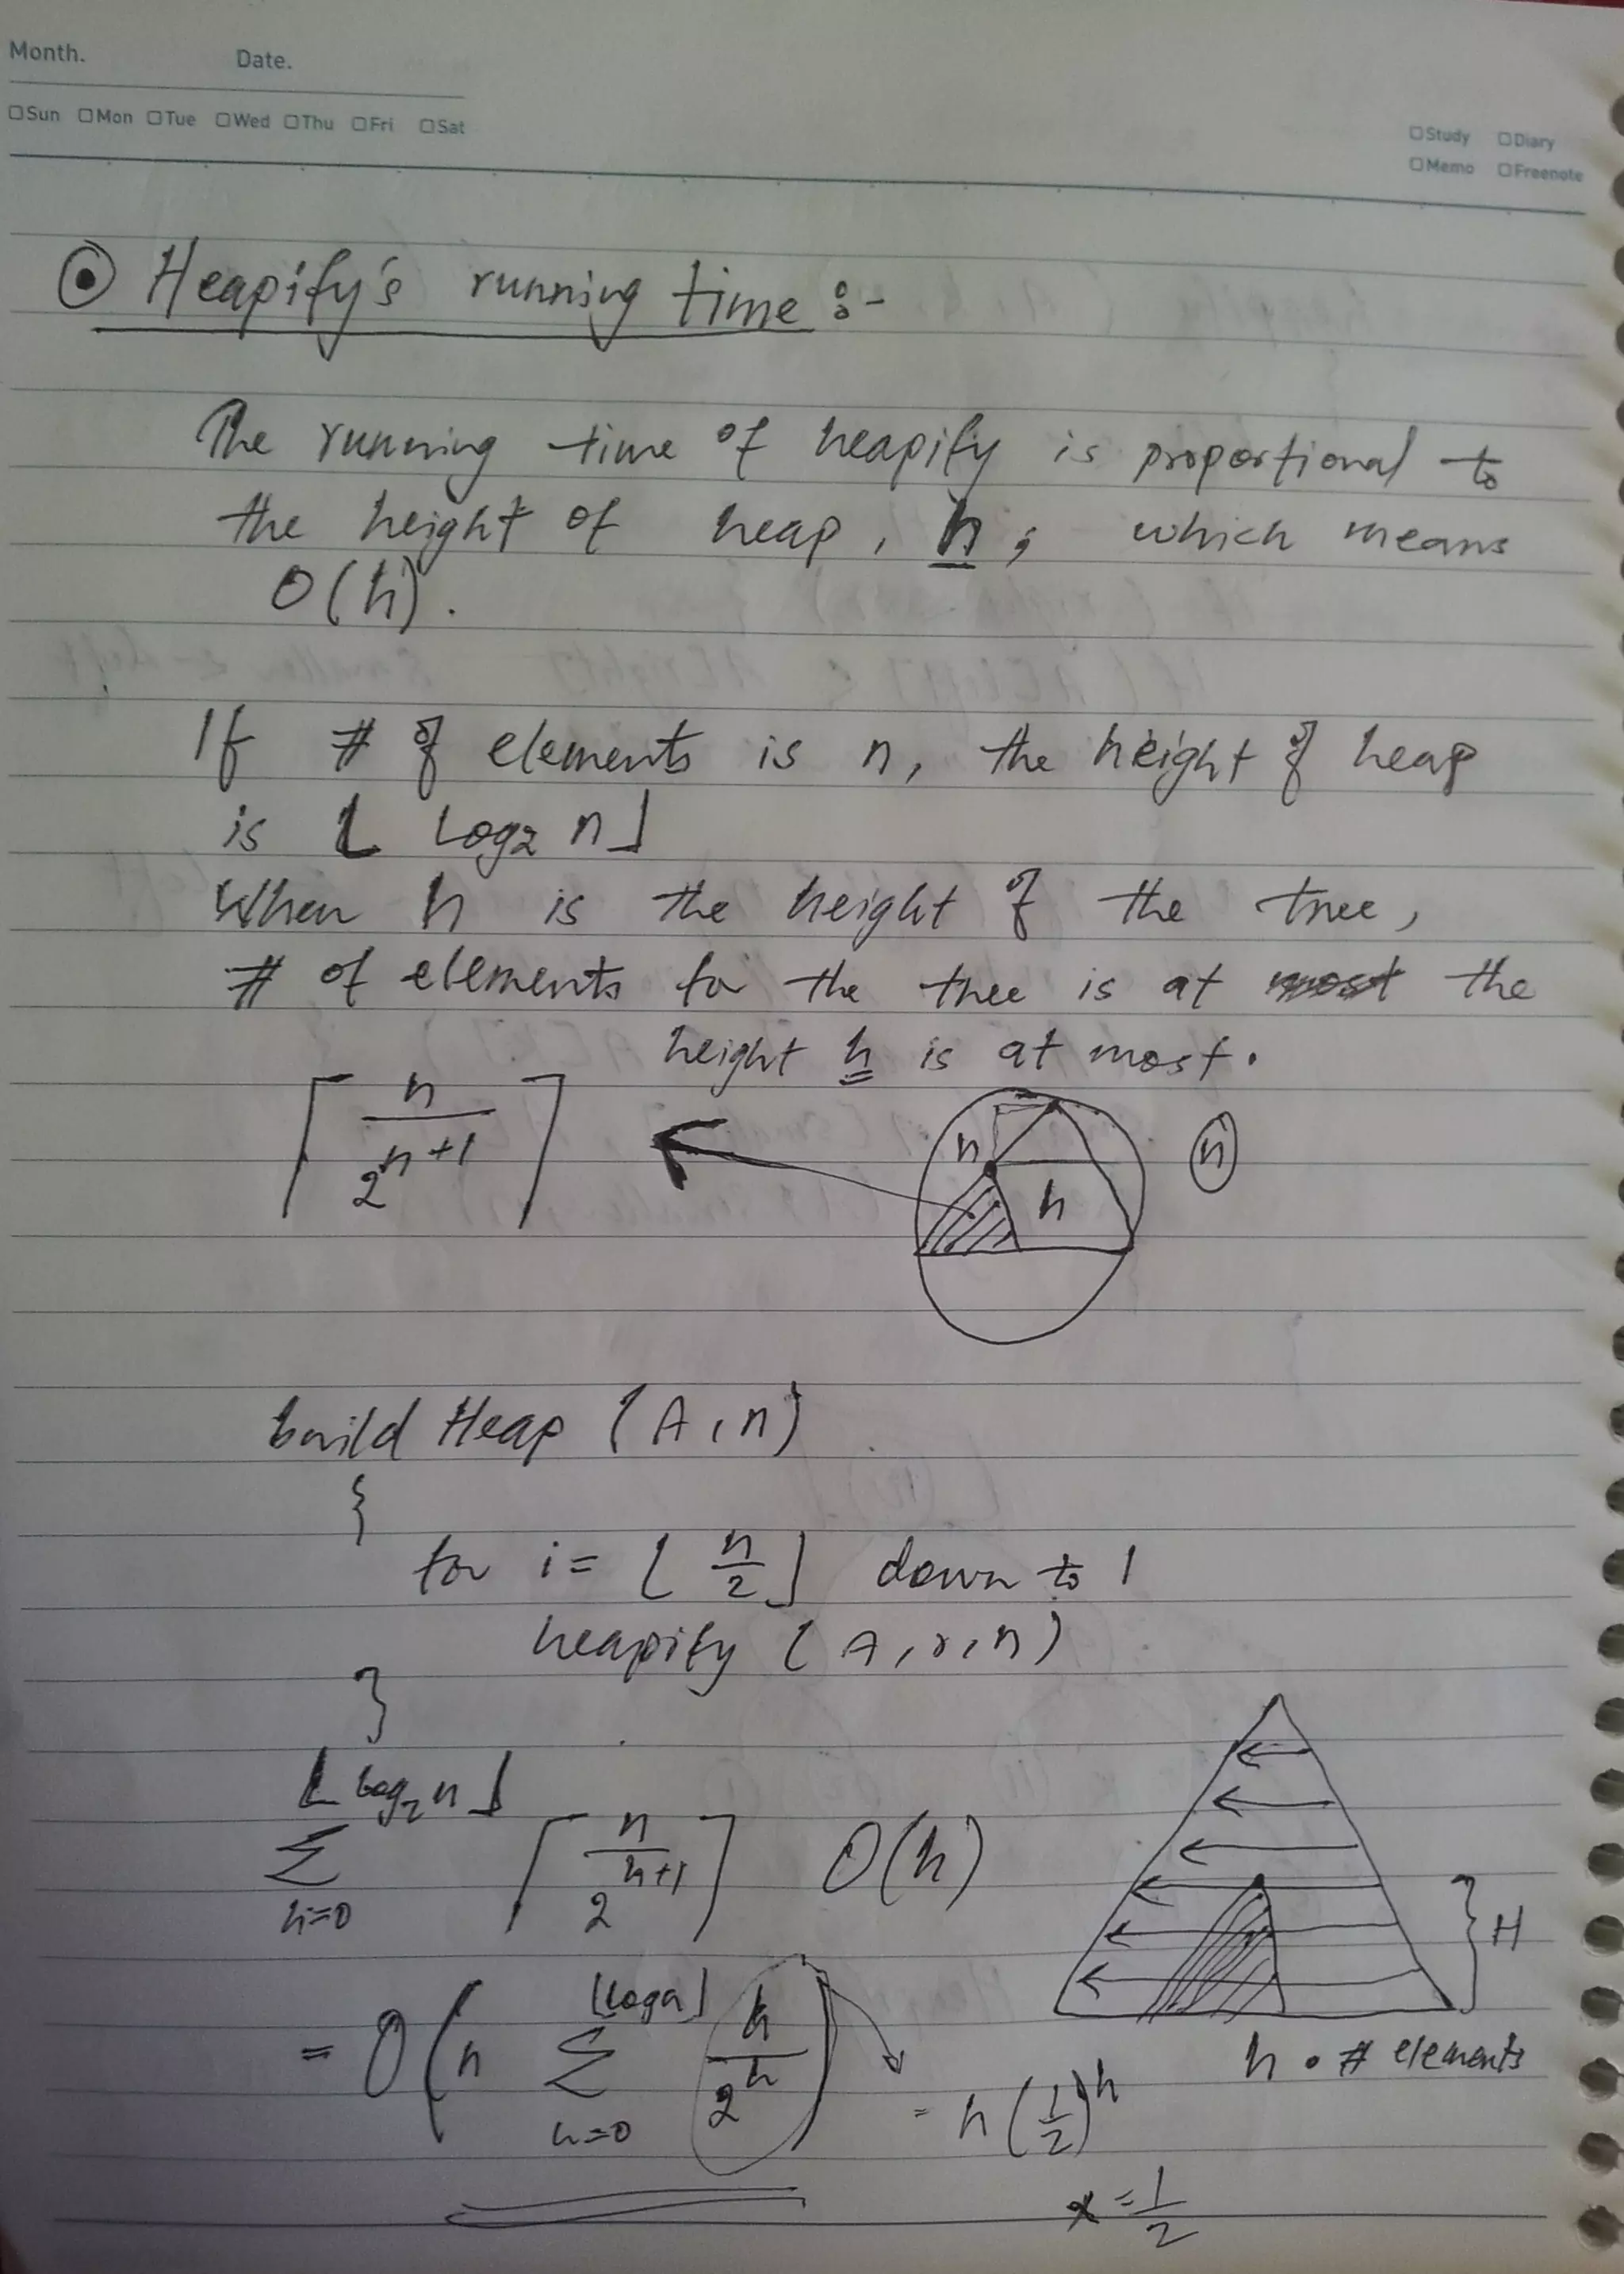 Month. Date.
□Sun □Mon □Tue □Wed □Thu □Fri □Sat
□Study □Diary
□Memo □Freenote
⊙ Heapify's running time :-
The running time of heapify is proportional to
the height of heap, h; which means
O(h).
If # of elements is n, the height of heap
is ⌊ Log₂ n⌋
When h is the height of the tree,
# of elements for the tree is at most the
height h is at most.
⌈ n / 2^(h+1) ⌉
h
h
n
build Heap (A, n)
{
for i = ⌊ n/2 ⌋ down to 1
heapify (A, r, n)
}
⌊ log₂ n ⌋
Σ ⌈ n / 2^(h+1) ⌉ O(h)
h=0
H
= O(n Σ_(h=0)^(⌊log n⌋) h / 2^h)
h • # elements
= h (1/2)^h
x = 1/2